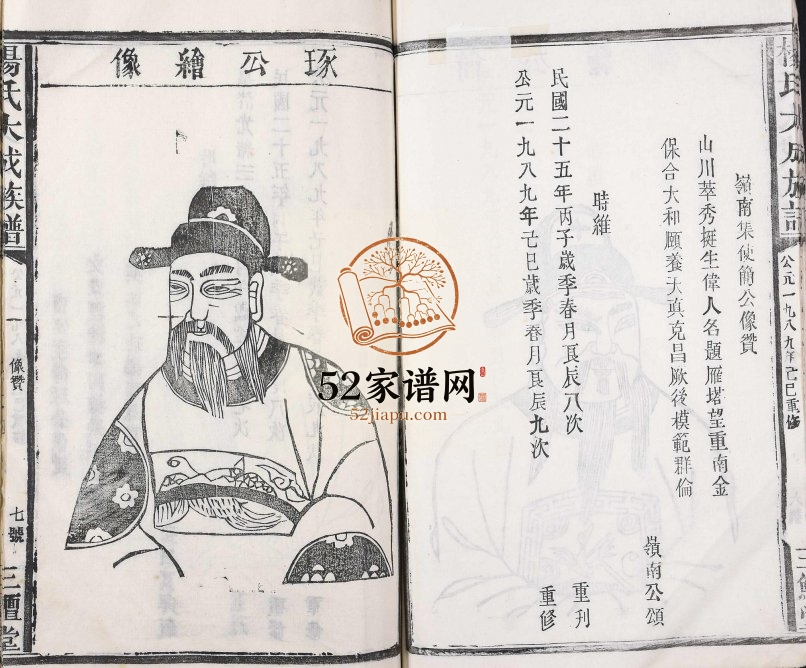 楊氏大成族譜
公元一九八九年己巳重修
嶺南集使簡公像贊
山川萃秀挺生偉人名題雁塔望重南金
保合大和頤養天真克昌厥後模範群倫
嶺南公頌
時維
民國二十五年丙子歲季春月良辰八次
重刊
公元一九八九年己巳歲季春月良辰九次
重修
琢公繪像
楊氏大成族譜
像贊
七號
三鱣堂
52家谱网
52jiapu.com